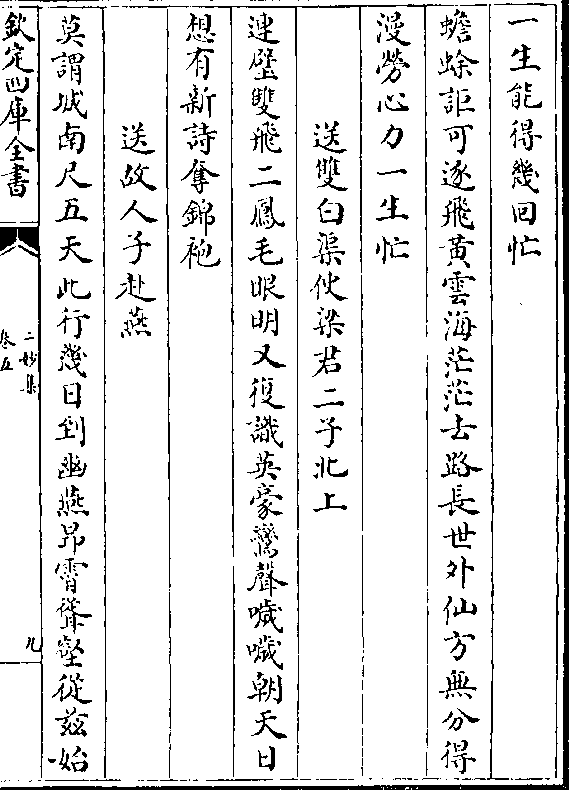 一生能得幾回忙
蟾蜍詎可逐飛黃雲海茫茫去路長世外仙方無分得
漫勞心力一生忙
送雙白渠使梁君二子北上
連璧雙飛二鳳毛眼明又復識英豪鸞聲噦噦朝天日
想有新詩奪錦袍
送故人子赴燕
莫謂城南尺五天此行幾日到幽燕昻霄聳壑從兹始
欽定四庫全書
二妙集
卷五
九